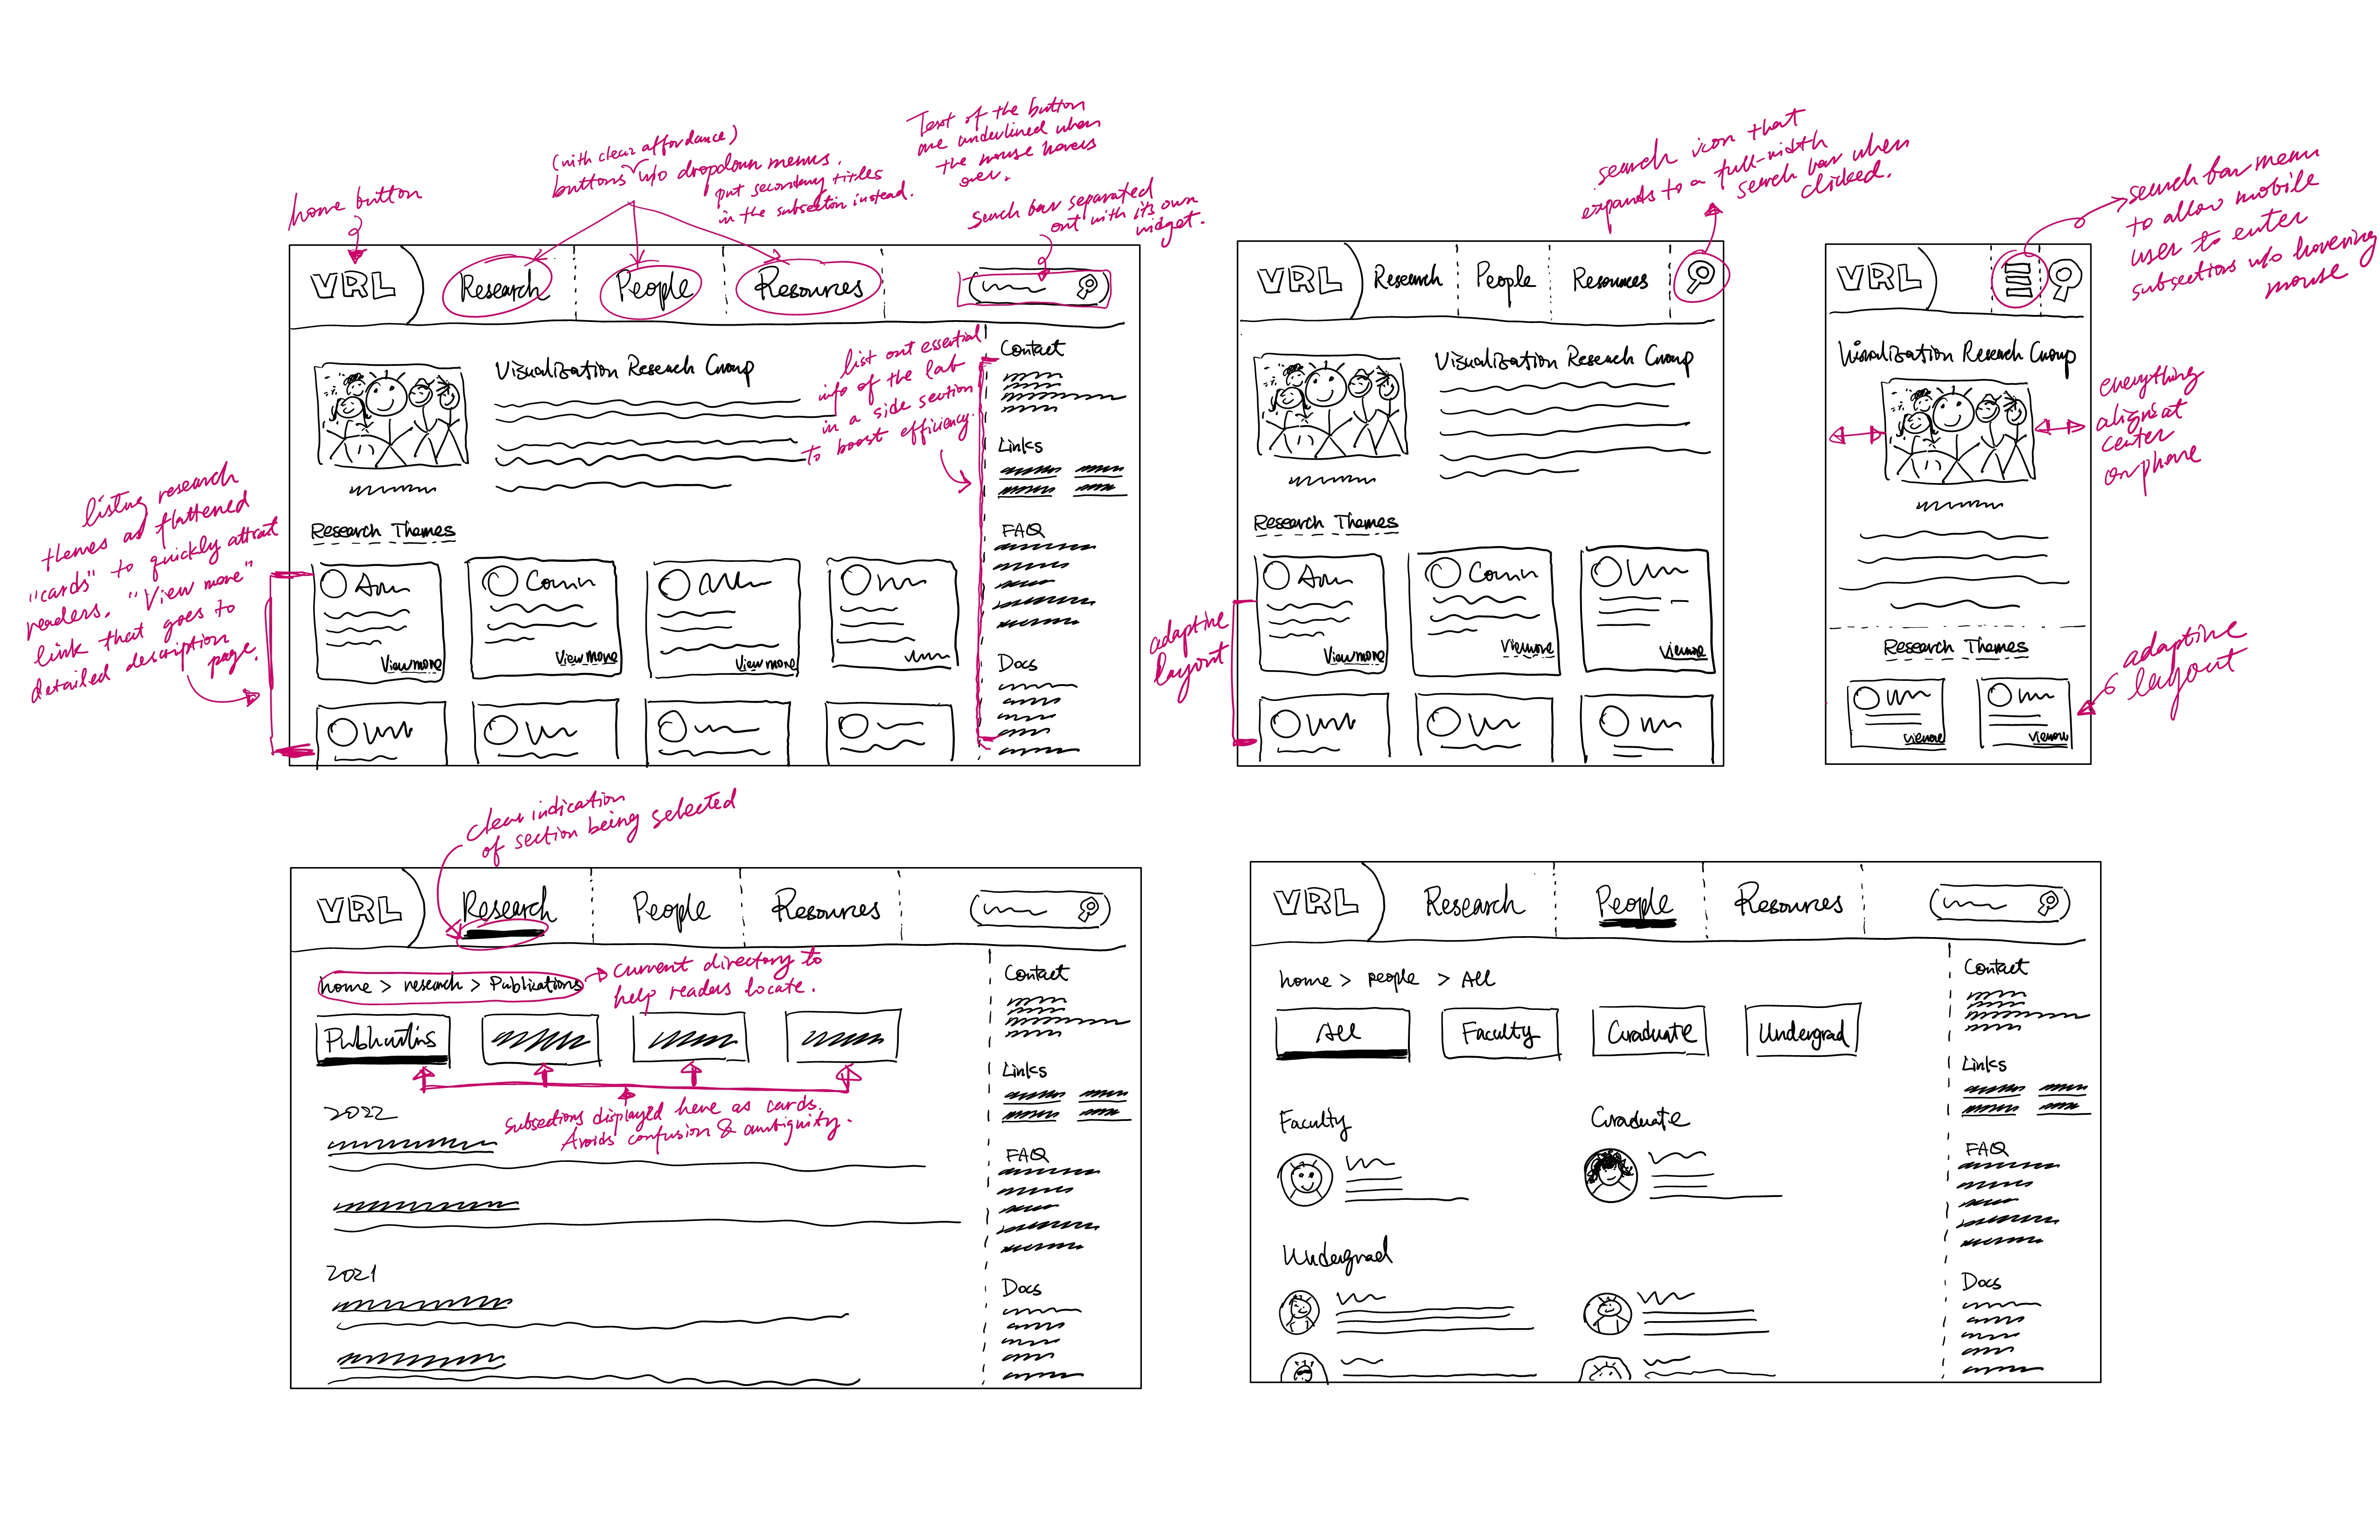 home button
(with clear affordance)
buttons w/o dropdown menus.
put secondary titles
in the subsection instead.
Text of the button
are underlined when
the mouse hovers
over.
search bar separated
out with its own
widget.
VRL
Research
People
Resources
Visualization Research Group
list out essential
info of the lab
in a side section
to boost efficiency.
Contact
Links
FAQ
Docs
Research Themes
View more
View more
View more
listing research
themes as flattened
"cards" to quickly attract
readers. "View more"
link that goes to
detailed description
page.
search icon that
expands to a full-width
search bar when
clicked.
VRL
Research
People
Resources
Visualization Research Group
Research Themes
View more
Viemore
Viemore
adaptive
layout
search bar menu
to allow mobile
user to enter
subsections w/o hovering
mouse
VRL
Visualization Research Group
everything
aligns at
center
on phone
Research Themes
Viemore
Viemore
adaptive
layout
clear indication
of section being selected
VRL
Research
People
Resources
home > research > Publications
current directory to
help readers locate.
Publications
subsections displayed here as cards.
Avoids confusion & ambiguity.
2022
2021
Contact
Links
FAQ
Docs
VRL
Research
People
Resources
home > people > All
All
Faculty
Graduate
Undergrad
Faculty
Graduate
Undergrad
Contact
Links
FAQ
Docs